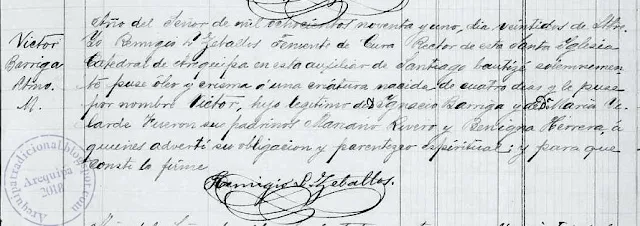 Año del Señor de mil ochocientos noventa y uno, dia veintidos de
Victor
Barriga
M.
Yo Remigio S. Zeballos Teniente de Cura Rector de esta Santa Iglesia
Catedral de Arequipa en esta auxiliar de Santiago bautizé solemnemen-
te puse óleo y crisma á una criatura nacida de cuatro dias y le puse
por nombre Victor, hijo legitimo de D. Ignacio Barriga y de Da. Maria Ve-
larde Fueron sus padrinos Mariano Rivero y Benigna Herrera, á
quienes advertí su obligacion y parentezco espiritual; y para que
conste lo firmé
Remigio S. Zeballos.
Arequipatradicional.blogspot.com
Arequipa
2018